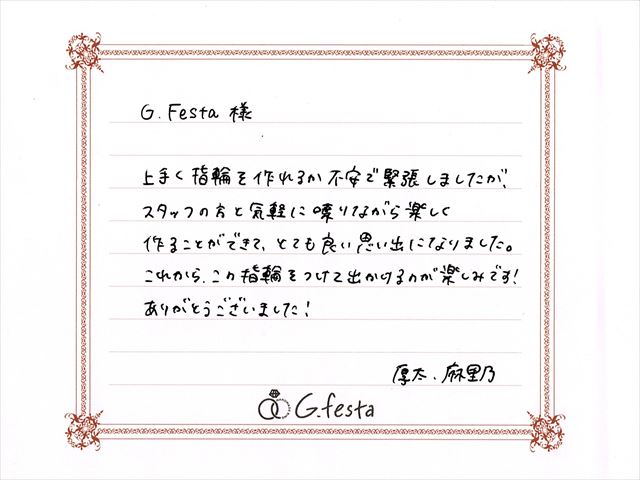 G. Festa 様
上手く指輪を作れるか不安で緊張しましたが、
スタッフの方と気軽に喋りながら楽しく
作ることができて、とても良い思い出になりました。
これから、この指輪をつけて出かけるのが楽しみです!
ありがとうございました!
厚太、麻里乃
G.festa